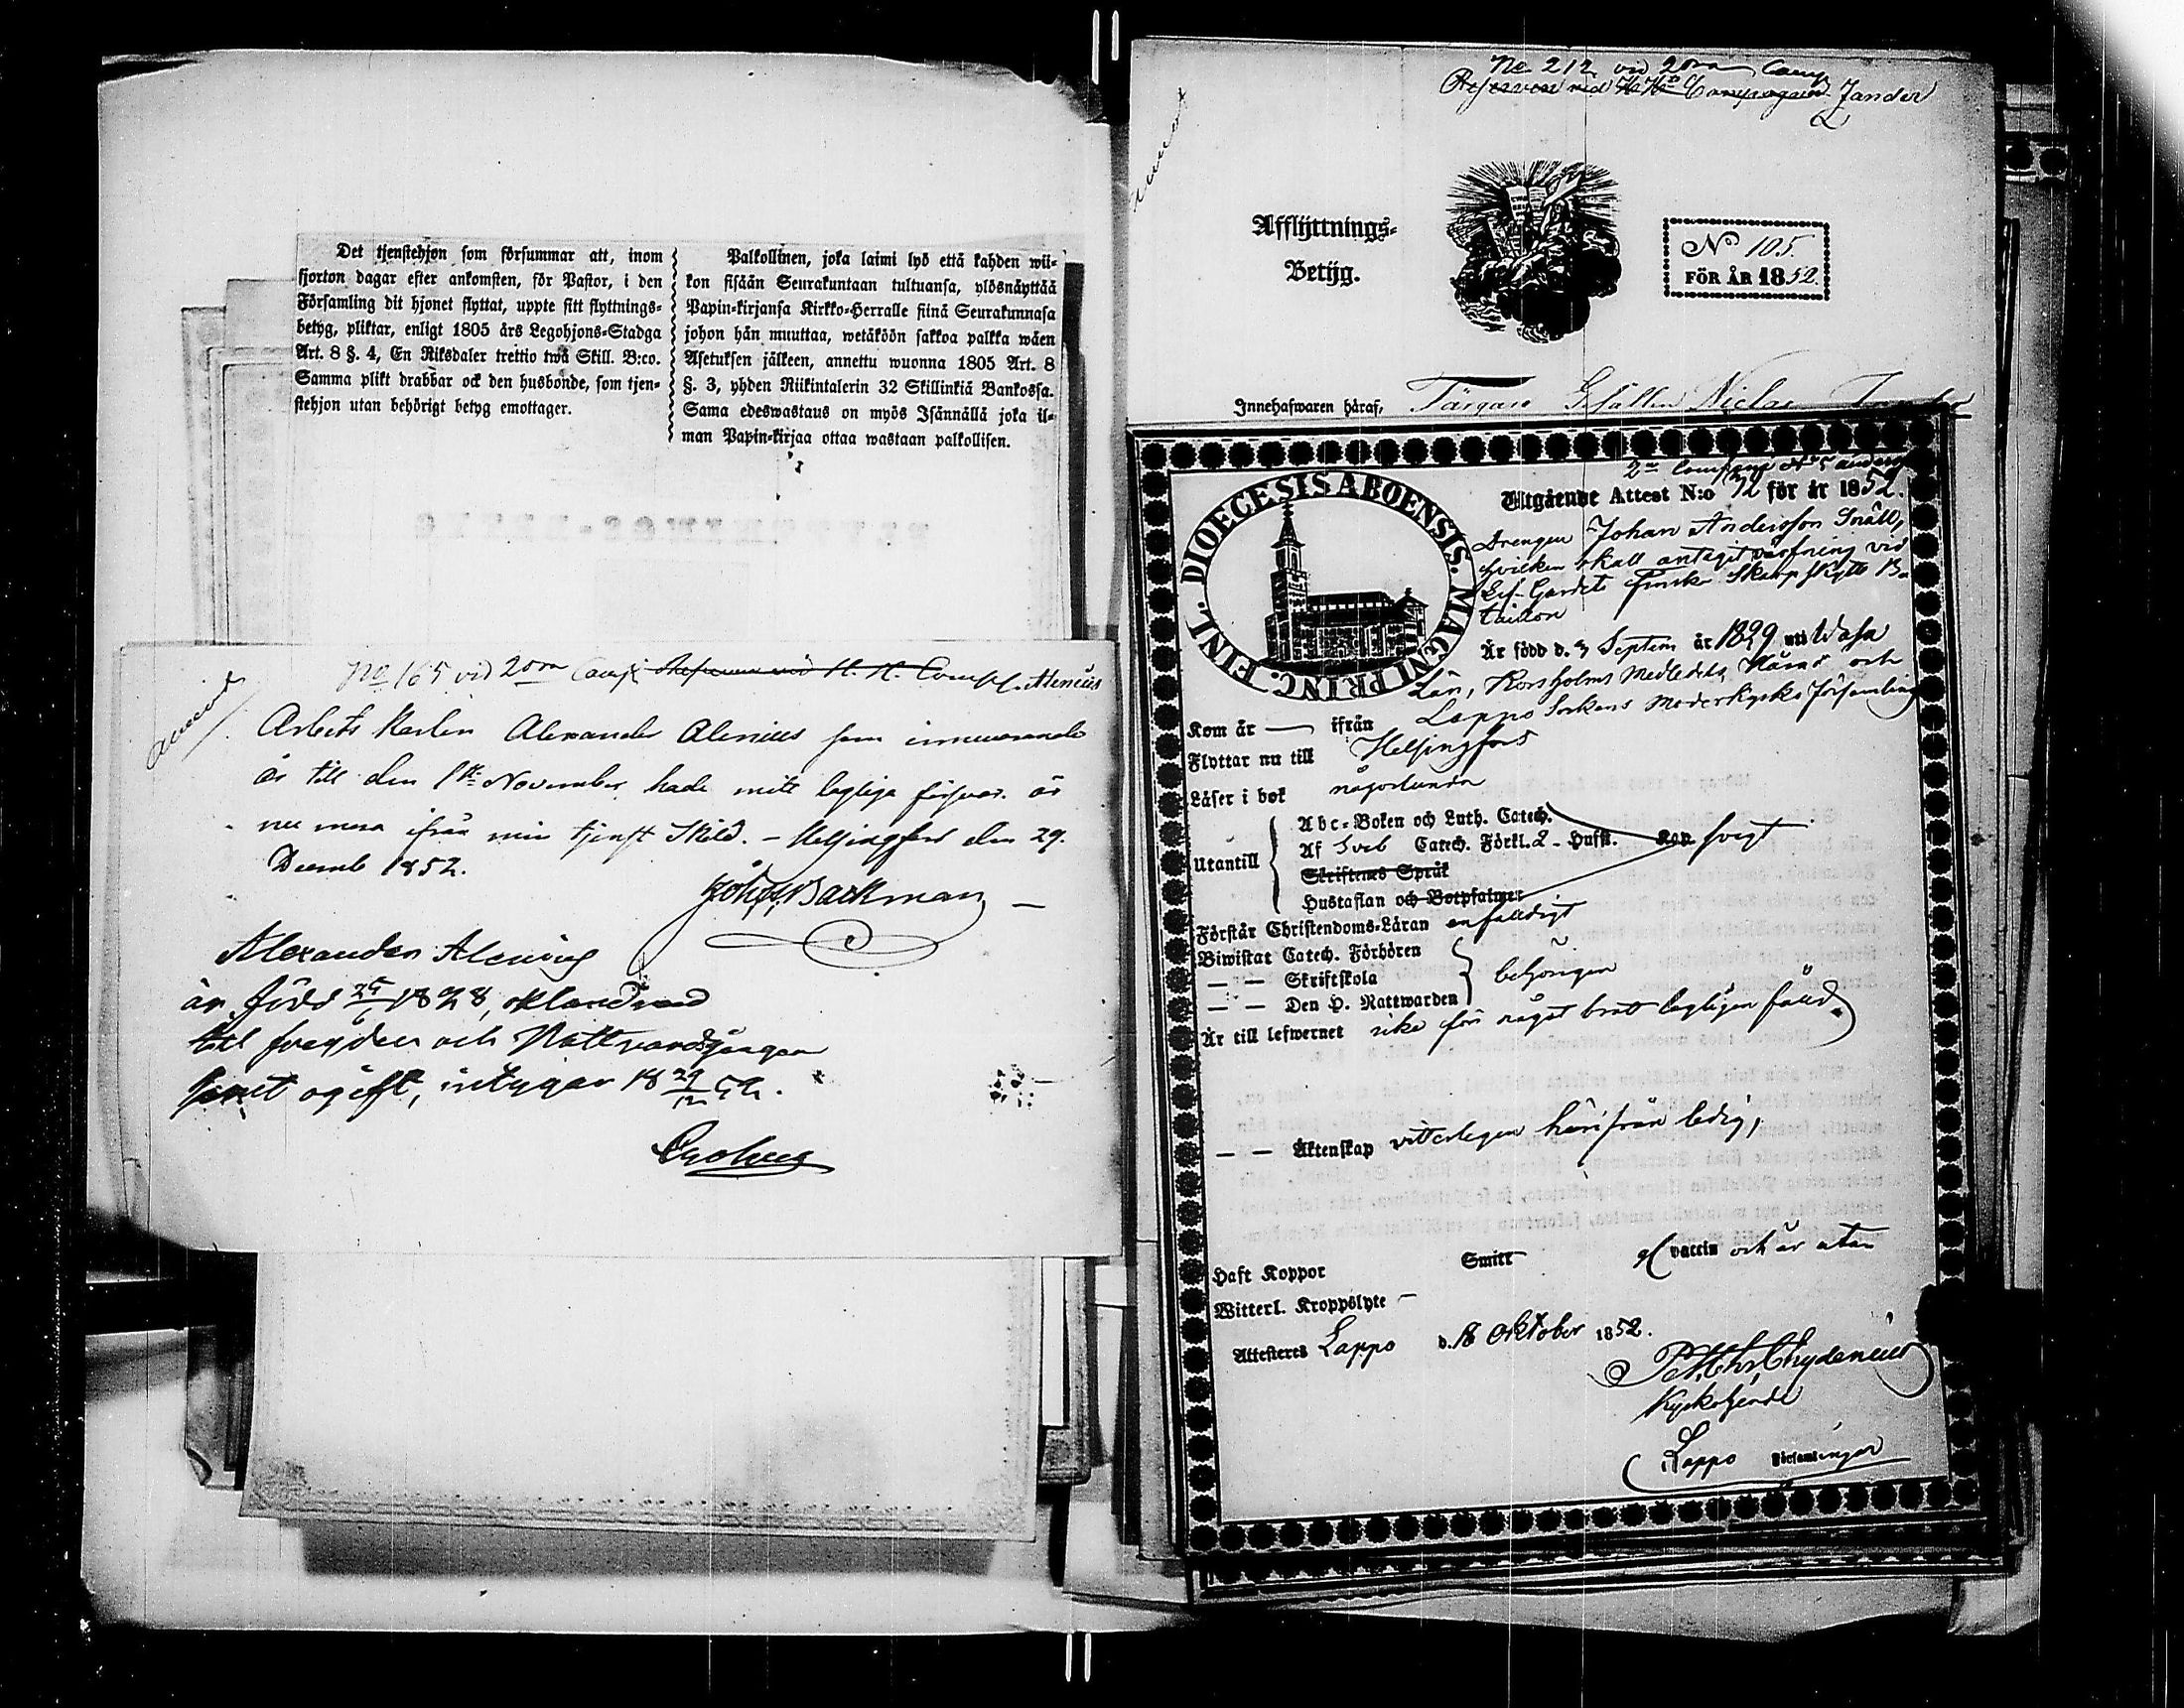 Det tjenstehjon som försummar att, inom
fjorton dagar efter ankomsten, för Pastor, i den
Församling dit hjonet flyttat, uppte sitt flyttnings-
betyg, pliktar, enligt 1805 års Legohjons-Stadga
Art. 8 §. 4, En Riksdaler trettio twå Skill. B:co.
Samma plikt drabbar ock den husbonde, som tjen-
stehjon utan behörigt betyg emottager.
Palkollinen, joka laimi lyö että kahden wii-
kon sisään Seurakuntaan tultuansa, ylösnäyttää
Papin-kirjansa Kirkko-Herralle siinä Seurakunnasa
johon hän muuttaa, wetäköön sakkoa palkka wäen
Asetuksen jälkeen, annettu wuonna 1805 Art. 8
§. 3, yhden Riikintalerin 32 Skillinkiä Bankossa.
Sama edeswastaus on myös Isännällä joka il-
man Papin-kirjaa ottaa wastaan palkollisen.
No 165 vid 2dra Camp. Alenius
Arbets Karlen Alexander Alenius som innewarande
år till den 1sta November hade mitt lagliga försvar är
nu mera ifrån min tjenst Skild. – Helsingfors den 29.
Decemb 1852.
Joh. Backman
Alexander Alenius
är född 25/1 1828, oklandrad
till frejden och Nattvardsgången
samt ogift, intygar 18 29/12 52.
No 212 vid 2dra Camp
Reserven vid Compagniet Zander
Afflyttnings-
Betyg.
No 105.
FÖR ÅR 1852.
Innehafwaren häraf, Färgare Gesällen Niclas
2a Comp
Utgående Attest N:o 72 för år 1852.
DIOECESIS ABOENSIS. MAGNI PRINC. FINL.
Drengen Johan Andersson Snäll,
hvilken skall antagit värfning vid
Lif-Gardets Finska Skarp Skytt Ba-
taillon
Är född d. 3 Septem år 1829 uti Wasa
Län, Korsholms Medledels Härad och
Kom år — ifrån Lappo Sockens Moderkyrko församling
Flyttar nu till Helsingfors
Läser i bok någorlunda
Utantill
Abc-Boken och Luth. Catech.
Af Sveb Catech. Förkl. 2 - Hufst. Kan svagt
Skriftenes Språk
Hustaflan och Botpsalmer
Förstår Christendoms-Läran enfaldigt
Biwistat Catech. Förhören
— — Skriftskola behörigen
— — Den H. Nattwarden
Är till lefwernet icke för något brott lagligen fälld.
— — Äktenskap vitterligen härifrån ledig,
Haft Koppor Smitt vaccin och är utan
Witterl. Kroppslyte —
Attesteras Lappo d. 18 Oktober 1852.
Chydenius
Kyrkoherde
Lappo Församlingar